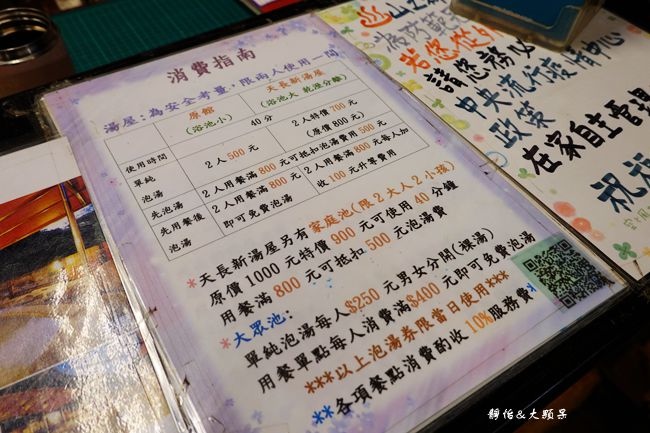 消費指南
湯屋:為安全考量,限兩人使用一間
原館
(浴池小)
天長新湯屋
(浴池大 乾溼分離)
使用時間
40分
單純
泡湯
2人500元
2人特價700元
(原價800元)
先泡湯
2人用餐滿800元可抵扣泡湯費用500元
先用餐後
泡湯
2人用餐滿800元
即可免費泡湯
2人用餐滿800元每人加
收100元升等費用
*天長新湯屋另有家庭池(限2大人2小孩)
原價1000元特價900元可使用40分鐘
用餐滿800元可抵扣500元泡湯費
*大眾池:
單純泡湯每人$250元男女分開(裸湯)
用餐單點每人消費滿$400元即可免費泡湯
***以上泡湯券限當日使用***
**各項餐點消費酌收10%服務費*
請您務必
中央流行疫情中心
政策
在家自主管理
祝福
靜怡&大顆呆